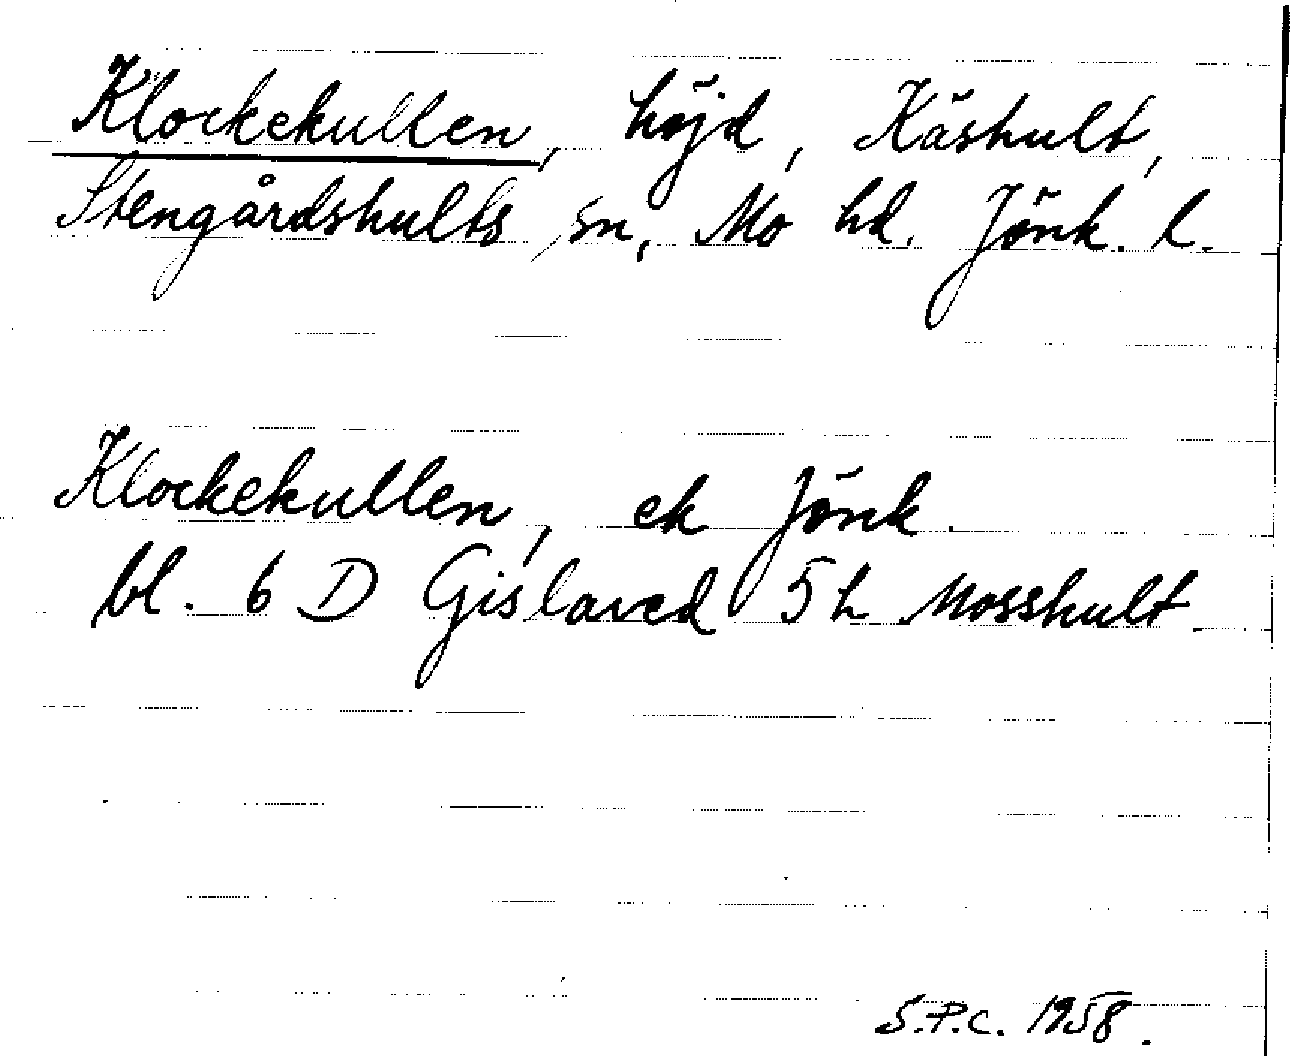 Klockekullen, höjd, Kåshult,
Stengårdshults sn, Mo hd. Jönk. l.
Klockekullen, ek Jönk.
bl. 6 D Gislaved 5 h Mosshult.
S.P.C. 1958.